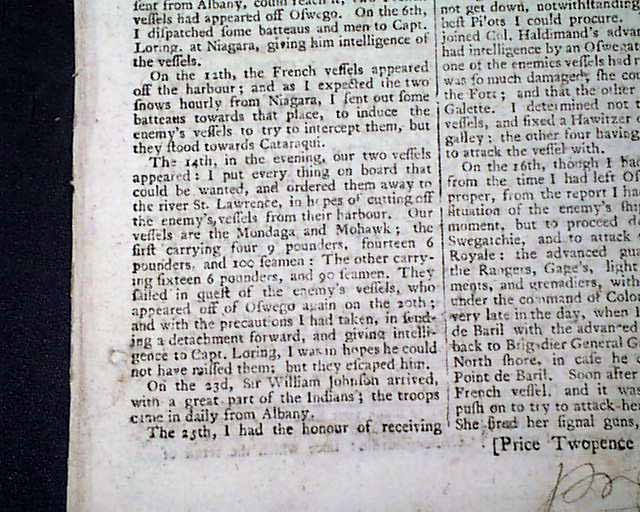 sent from Albany, could reach it, two
vessels had appeared off Oswego. On the 6th,
I dispatched some batteaus and men to Capt.
Loring, at Niagara, giving him intelligence of
the vessels.
On the 12th, the French vessels appeared
off the harbour; and as I expected the two
snows hourly from Niagara, I sent out some
batteaus towards that place, to induce the
enemy's vessels to try to intercept them, but
they stood towards Cataraqui.
The 14th, in the evening, our two vessels
appeared: I put every thing on board that
could be wanted, and ordered them away to
the river St. Lawrence, in hopes of cutting off
the enemy's vessels from their harbour. Our
vessels are the Mondaga and Mohawk; the
first carrying four 9 pounders, fourteen 6
pounders, and 100 seamen: The other carry-
ing sixteen 6 pounders, and 90 seamen. They
sailed in quest of the enemy's vessels, who
appeared off of Oswego again on the 20th;
and with the precautions I had taken, in send-
ing a detachment forward, and giving intelli-
gence to Capt. Loring, I was in hopes he could
not have missed them; but they escaped him.
On the 23d, Sir William Johnson arrived,
with a great part of the Indians; the troops
came in daily from Albany.
The 25th, I had the honour of receiving
not get down, notwithstanding
best Pilots I could procure.
joined Col. Haldimand's advan
had intelligence by an Oswegat
one of the enemies vessels had r
was so much damaged, she co
the Fort; and that the other
Galette. I determined not
vessels, and fixed a Hawitzer
galley: the other four having
to attack the vessel with.
On the 16th, though I had
from the time I had left Of
proper, from the report I ha
situation of the enemy's ship
moment, but to proceed d
Swegatchie, and to attack
Royale: the advanced gua
the Rangers, Gage's, light
ments, and grenadiers, with
under the command of Colo
very late in the day, when I
de Baril with the advanced
back to Brigadier General G
North shore, in case he
Point de Baril. Soon after
French vessel, and it was
push on to try to attack her
She fired her signal guns,
[Price Twopence